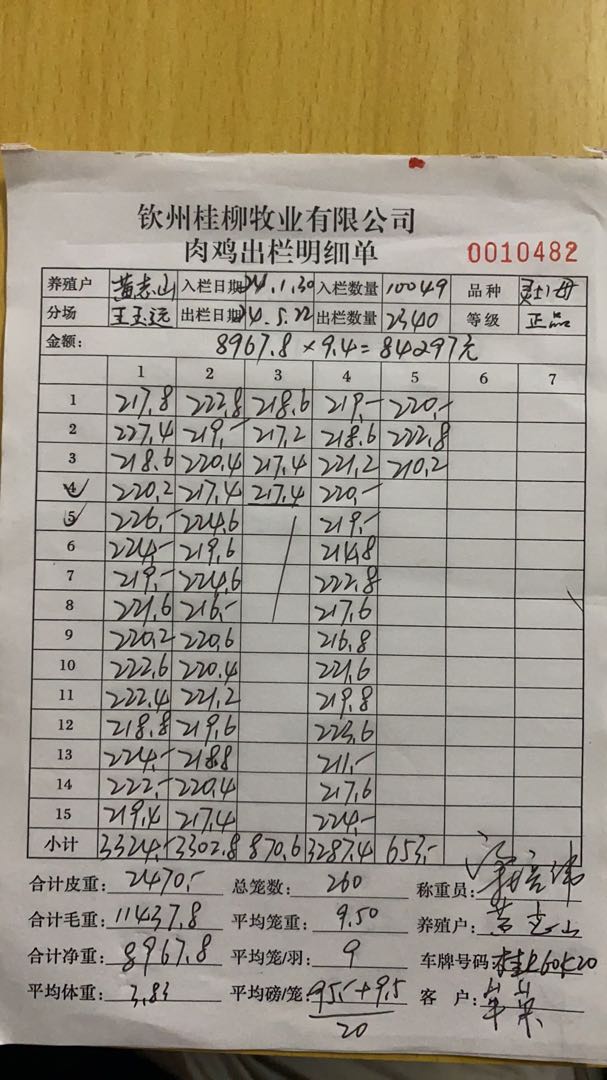 钦州桂柳牧业有限公司
肉鸡出栏明细单 0010482
养殖户 黄志山 入栏日期 24.1.30 入栏数量 10049 品种
分场 王玉远 出栏日期 24.5.22 出栏数量 2340 等级 正品
金额: 8967.8×9.4=84297元
1 2 3 4 5 6 7
1 217.8 222.8 218.6 219.- 220.-
2 227.4 219.- 217.2 218.6 222.8
3 218.6 220.4 217.4 221.2 210.2
4 220.2 217.4 217.4 220.-
5 226.- 224.6 219.-
6 224.- 219.6 214.8
7 219.- 224.6 222.8
8 221.6 216.- 217.6
9 220.2 220.6 216.8
10 222.6 220.4 221.6
11 222.4 221.2 219.8
12 218.8 219.6 223.6
13 224.- 218.8 211.-
14 222.- 220.4 217.6
15 219.4 217.4 224.-
小计 3324.- 3302.8 870.6 3287.4 653.-
合计皮重: 2470.- 总笼数: 260 称重员:
合计毛重: 11437.8 平均笼重: 9.50 养殖户: 黄志山
合计净重: 8967.8 平均笼/羽: 9 车牌号码:
平均体重: 3.83 平均磅/笼: 95.-+9.5 客户:
20